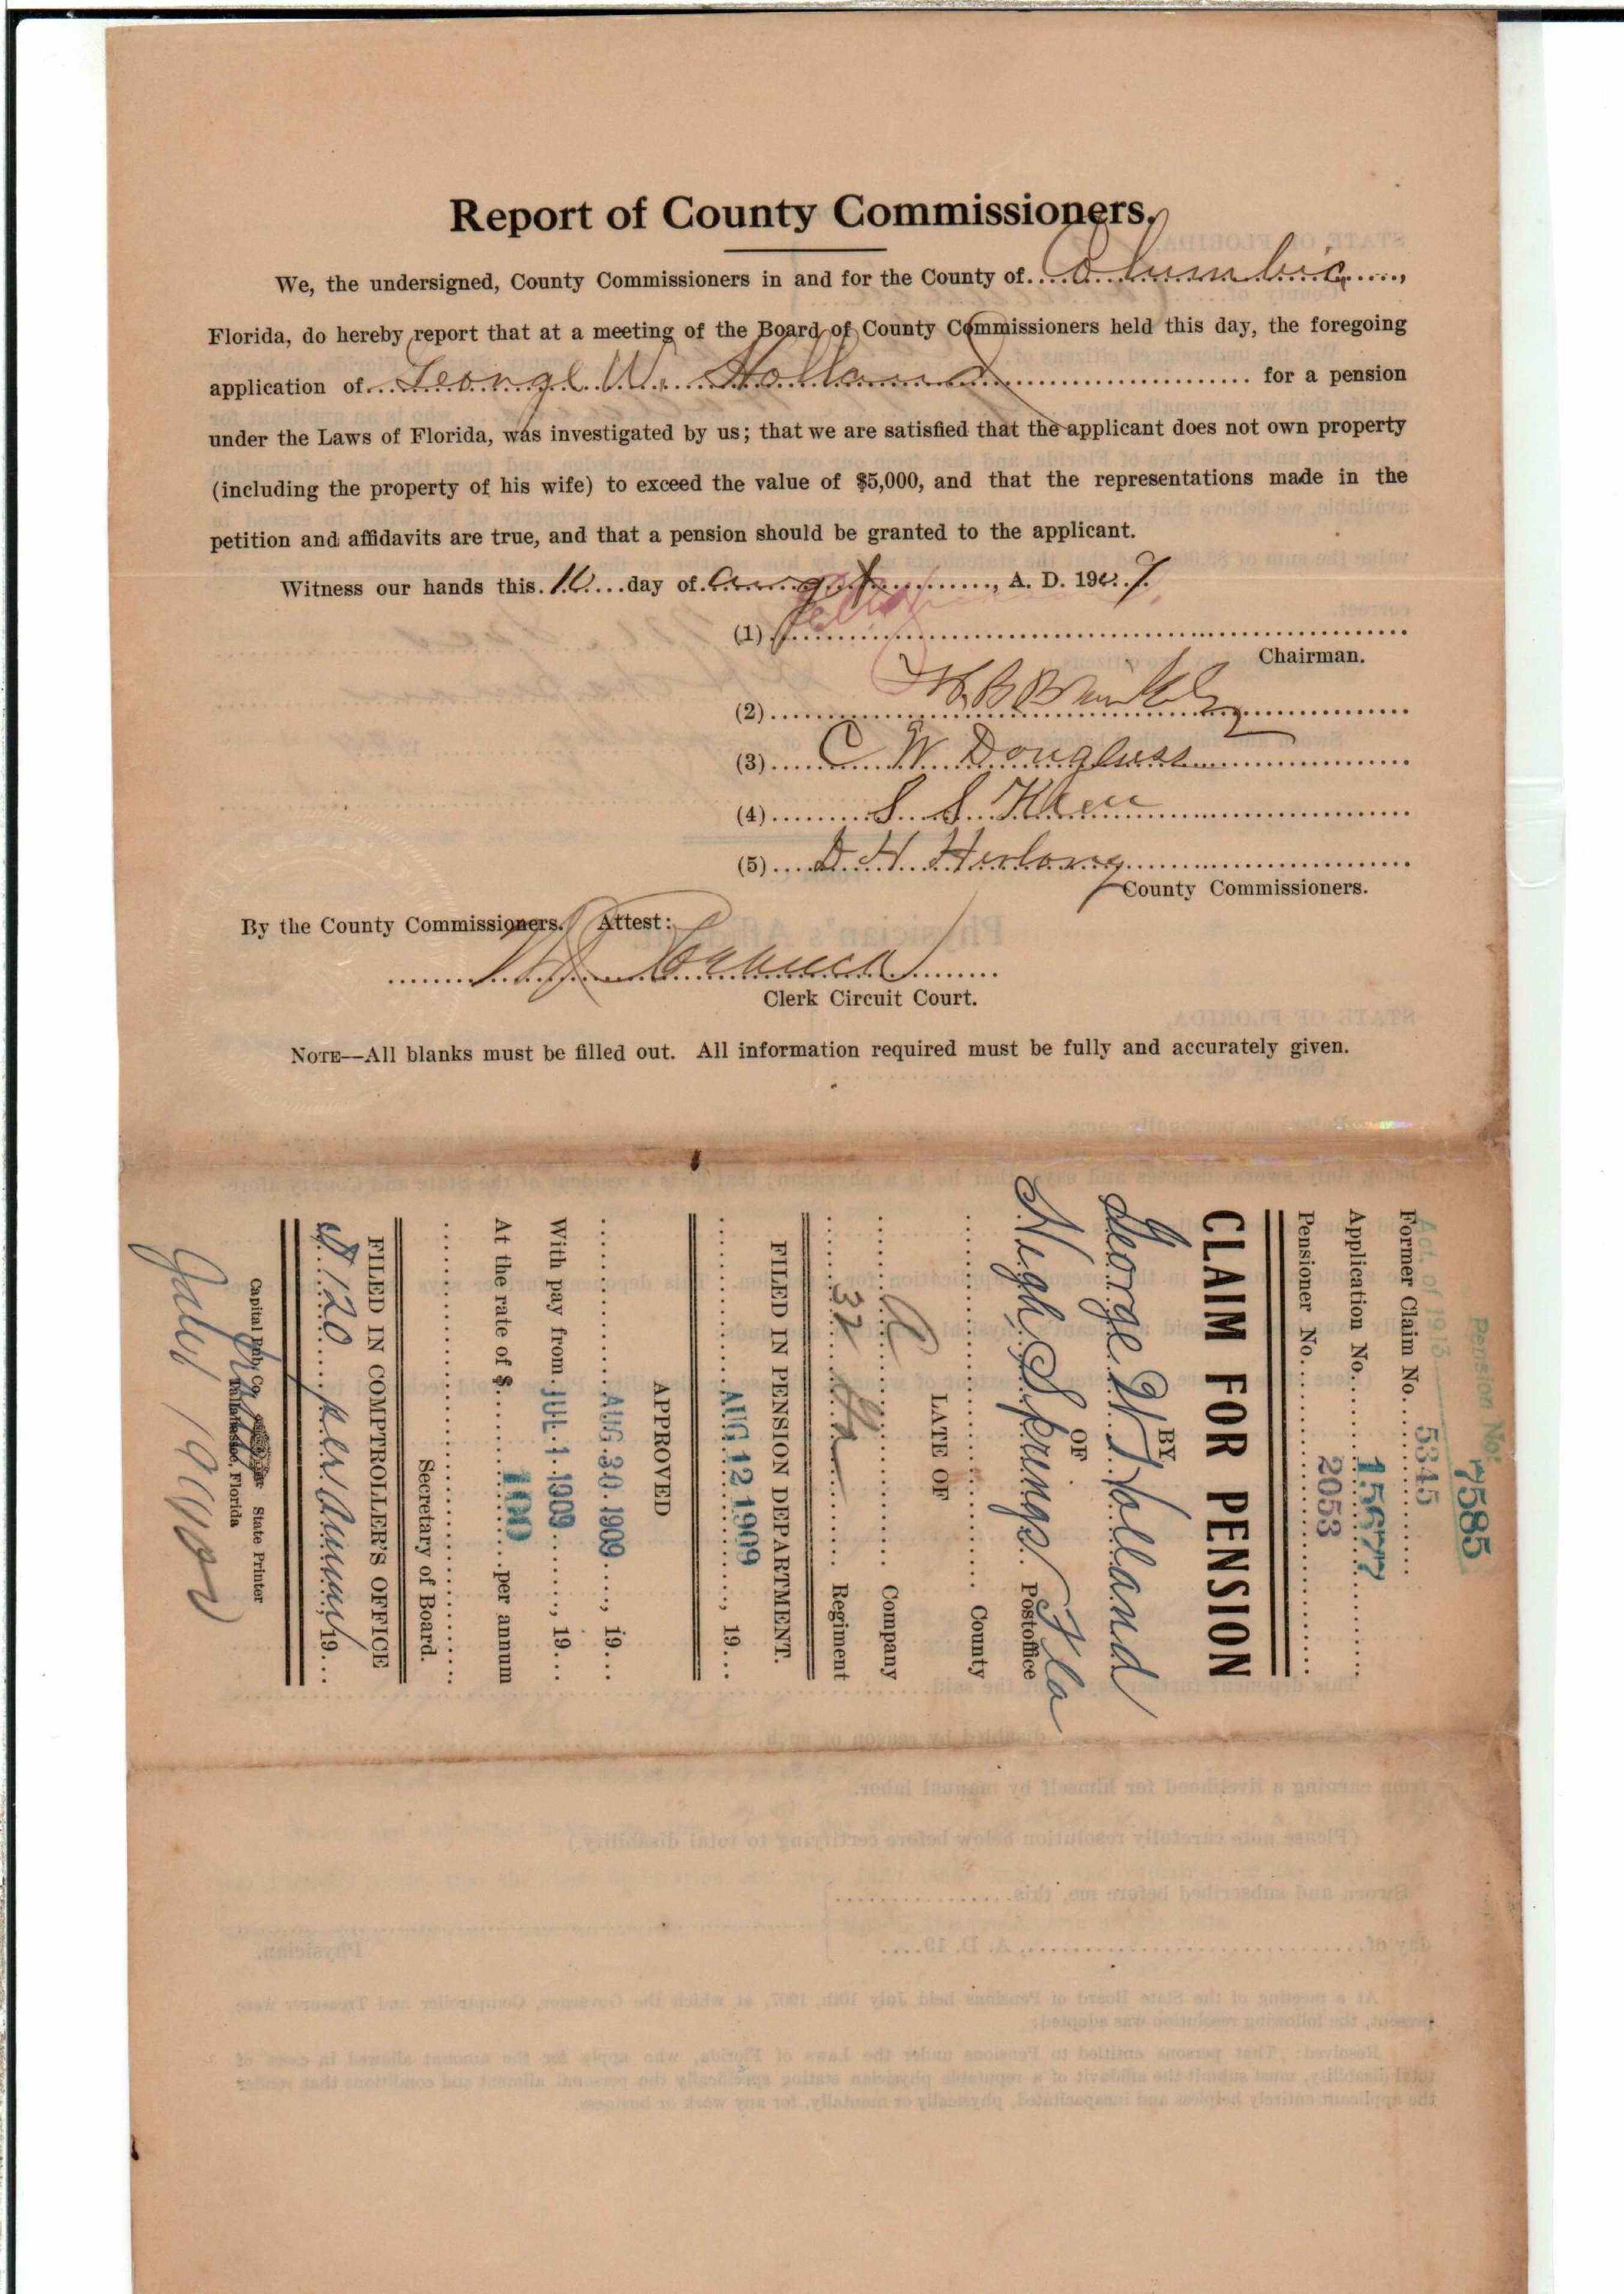 Report of County Commissioners.
We, the undersigned, County Commissioners in and for the County of Columbia,
Florida, do hereby report that at a meeting of the Board of County Commissioners held this day, the foregoing
application of George W. Holland for a pension
under the Laws of Florida, was investigated by us; that we are satisfied that the applicant does not own property
(including the property of his wife) to exceed the value of $5,000, and that the representations made in the
petition and affidavits are true, and that a pension should be granted to the applicant.
Witness our hands this 10 day of August, A. D. 190
(1)
Chairman.
(2) B
(3) C W Douglass
(4) S S
(5) D H Herlong
County Commissioners.
By the County Commissioners. Attest:
Clerk Circuit Court.
NOTE—All blanks must be filled out. All information required must be fully and accurately given.
Pension No. 7585
Act. of 1913
Former Claim No. 5345
Application No. 15677
Pensioner No. 2053
CLAIM FOR PENSION
BY
George W Holland
OF
High Springs Postoffice Fla
County
LATE OF
Company
32 Regiment
FILED IN PENSION DEPARTMENT.
AUG 12 1909, 19
APPROVED
AUG 30 1909, 19
With pay from JUL 1 1909, 19
At the rate of $ 100 per annum
Secretary of Board.
FILED IN COMPTROLLER'S OFFICE
$120 per annum 19
Capital Pub. Co. State Printer
Tallahassee, Florida